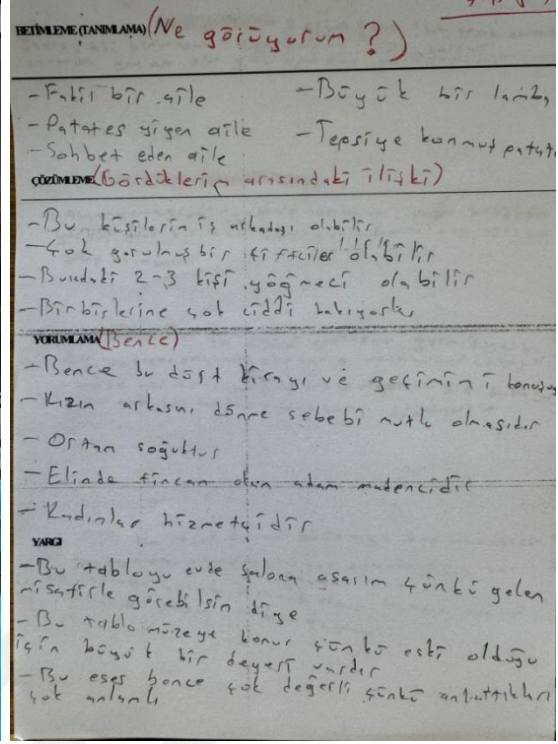 BETİMLEME(TANIMLAMA) (Ne görüyorum ?)
- Fakir bir aile
- Büyük bir lamba
- Patates yiyen aile
- Tepsiye konmuş patat
- Sohbet eden aile
ÇÖZÜMLEME (Gördüklerim arasındaki ilişki)
- Bu kişilerin iş arkadaşı olabilir
- Çok yorulmuş bir çiftçiler olabilir
- Burdaki 2-3 kişi olabilir
- Birbirlerine çok ciddi bakıyorlar
YORUMLAMA (Bence)
- Bence bu dört kirayı ve geçimini
- Kızın arkasını dönme sebebi mutlu olmasıdır
- Ortam soğuktur
- Elinde fincan olan adam madencidir
- Kadınlar hizmetçidir
YARGI
- Bu tabloyu evde salona asarım çünkü gelen
misafirle görebilsin diye
- Bu tablo müzeye konur çünkü eski olduğu
için büyük bir değeri vardır
- Bu eser bence çok değerli çünkü anlattıkları
çok anlamlı